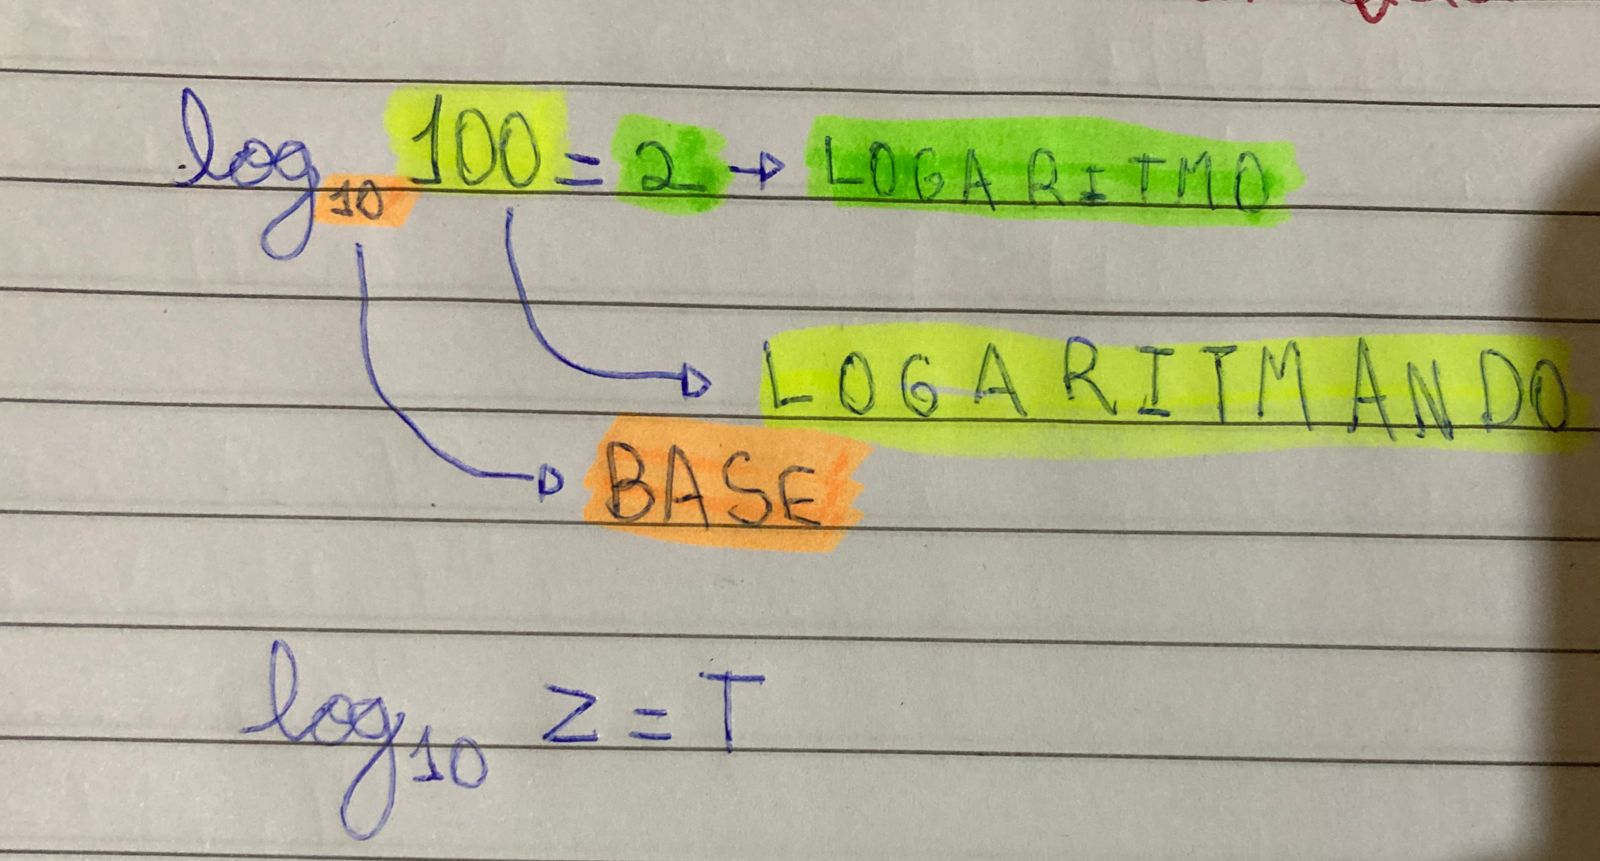 log₁₀ 100 = 2 → LOGARITMO
LOGARITMANDO
BASE
log₁₀ Z = T